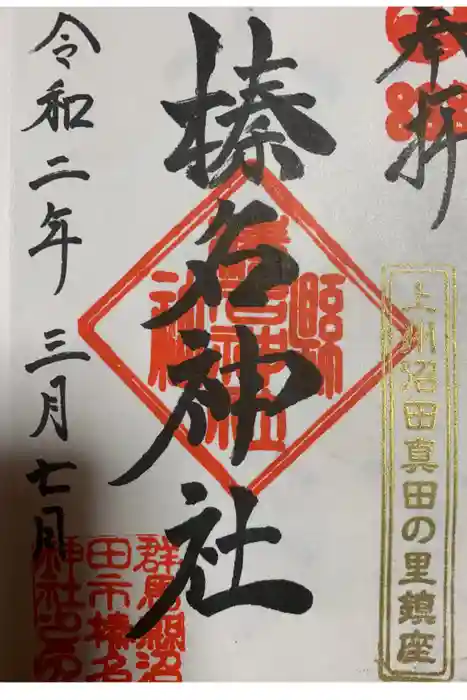 奉拝
上州沼田真田の里鎮座
榛名神社
令和二年 三月七月
群馬縣沼
田市榛名
神社之印